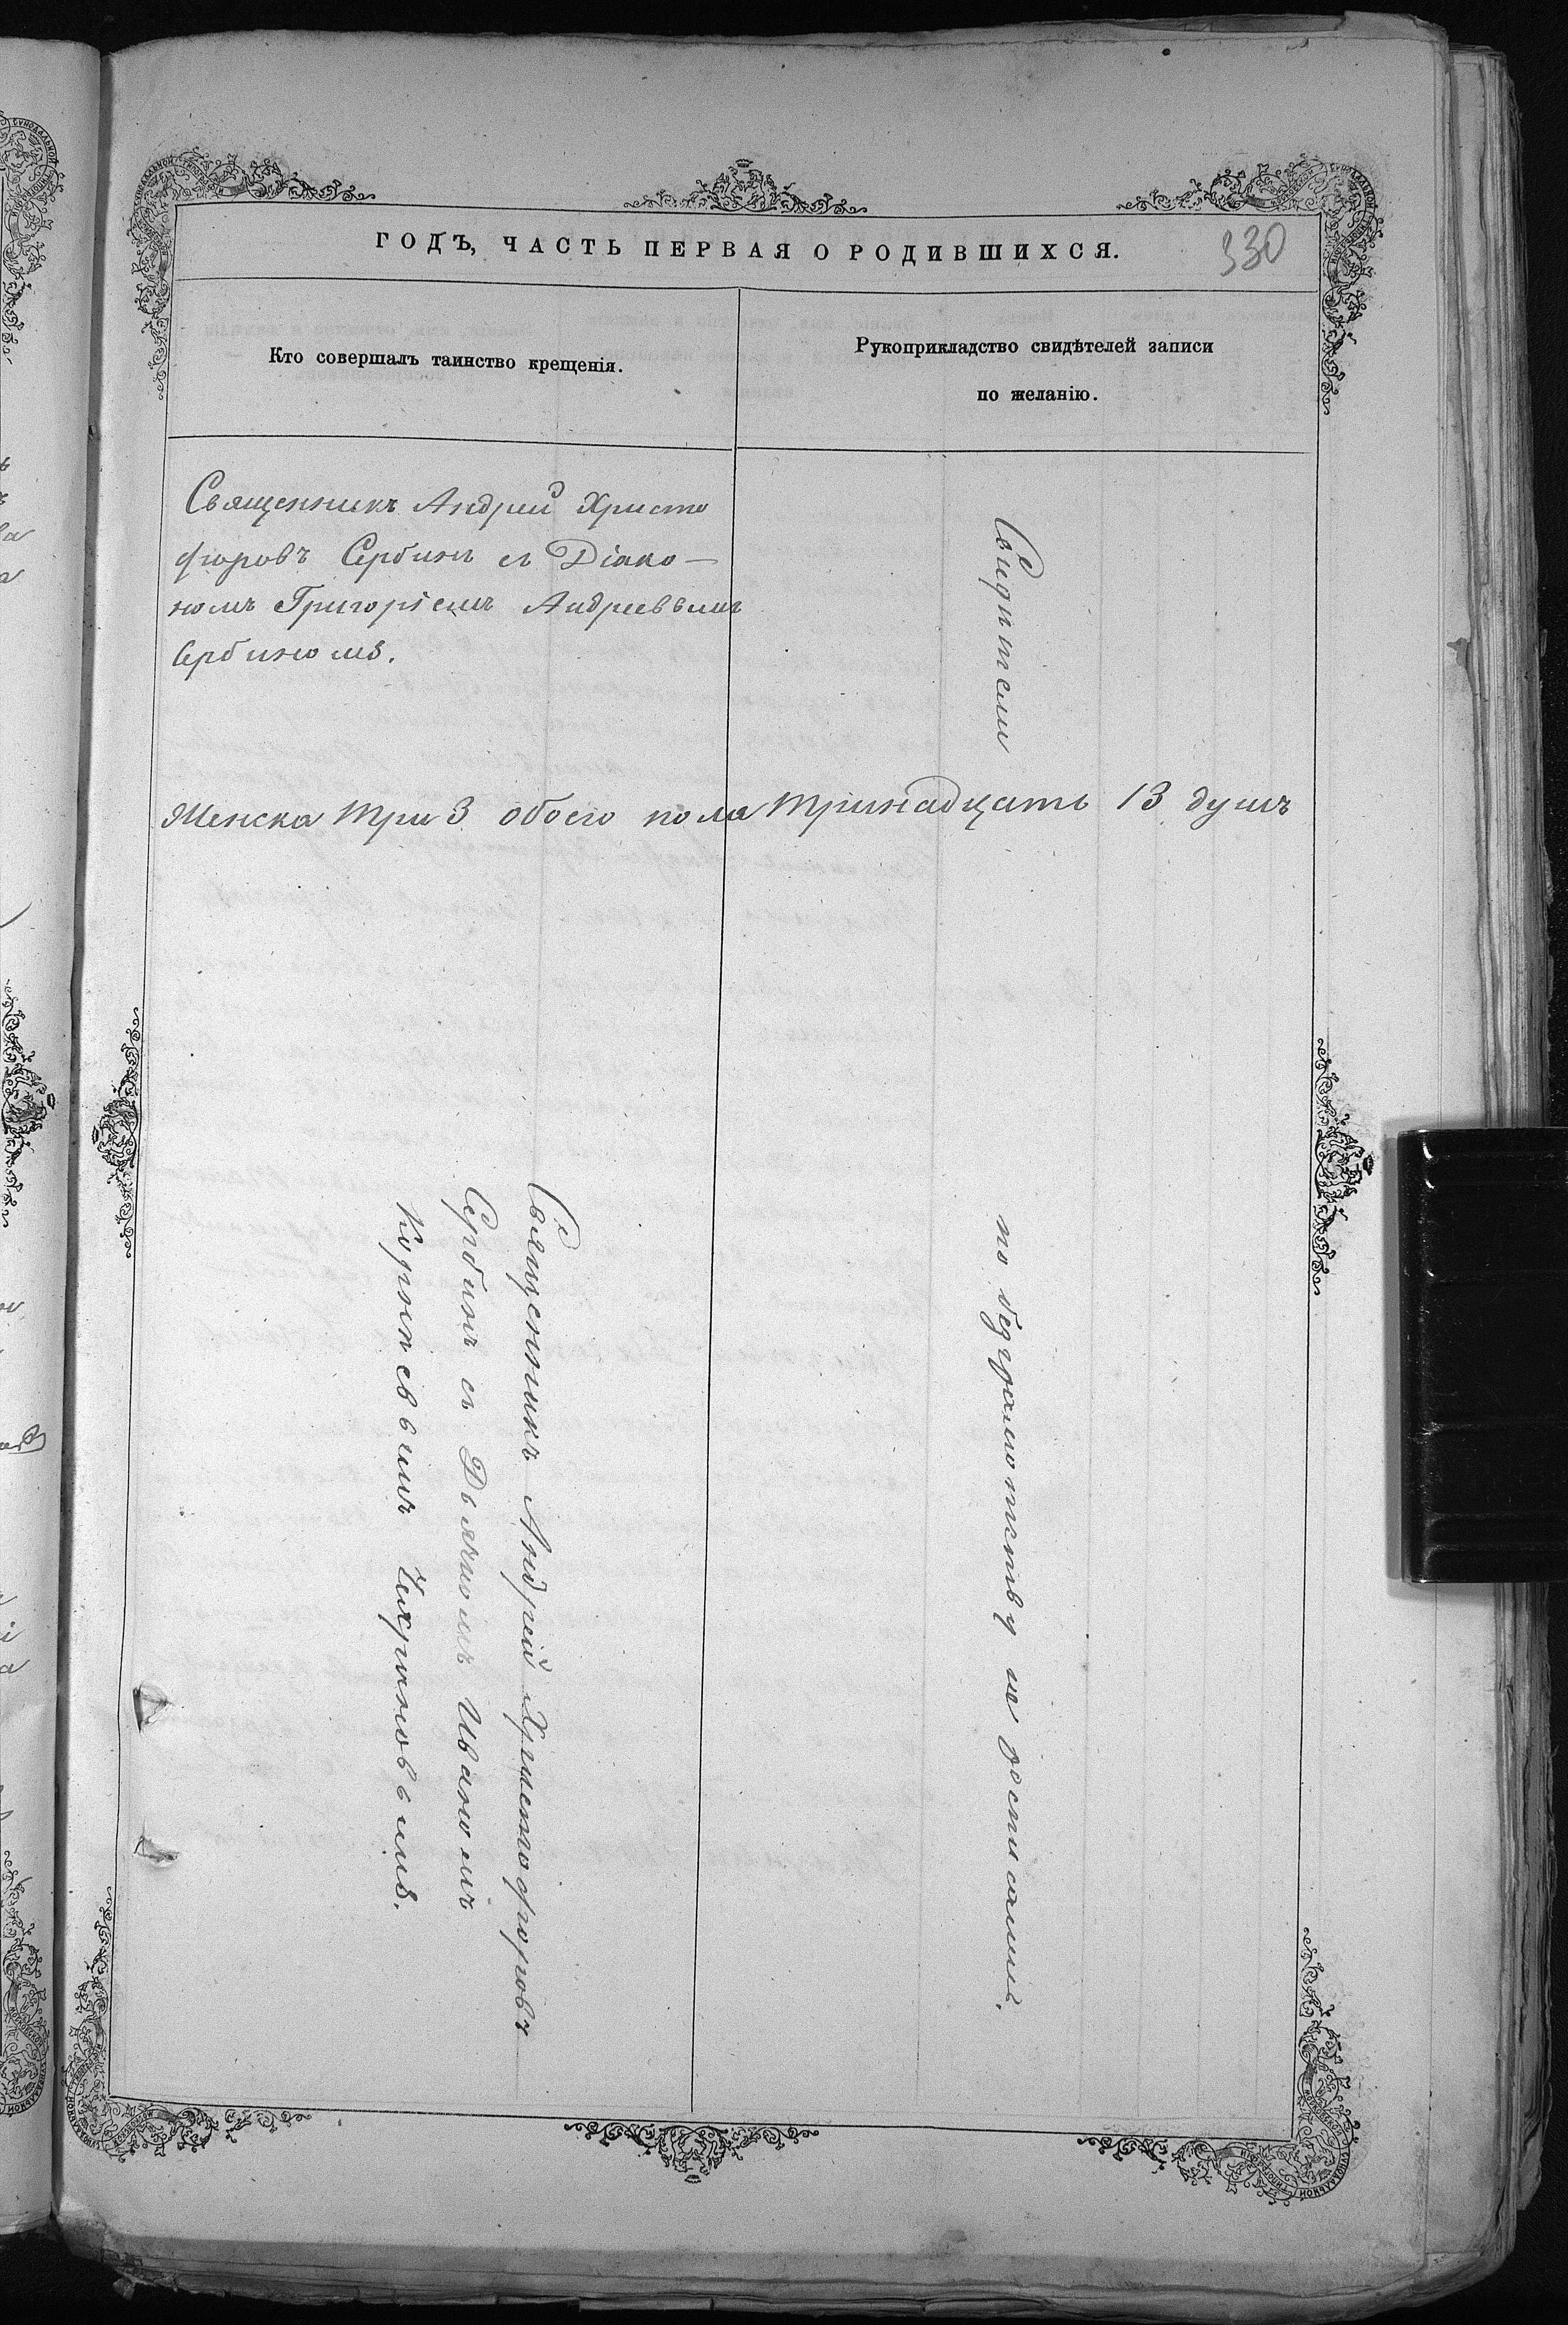 ГОДЪ, ЧАСТЬ ПЕРВАЯ О РОДИВШИХСЯ.
330
Кто совершалъ таинство крещенія.
Рукоприкладство свидѣтелей записи
по желанію.
Священникъ Андрей Христо
форовъ Сербинъ съ Діако-
номъ Григоріемъ Андреевымъ
Сербиномъ.
Свидѣтели
Женска три 3 обоего пола тринадцать 13 душъ
Священникъ Андрей Христофоровъ
Сербинъ съ Дьячкомъ Иваномъ
Корнѣевымъ
по безграмотству не росписались.